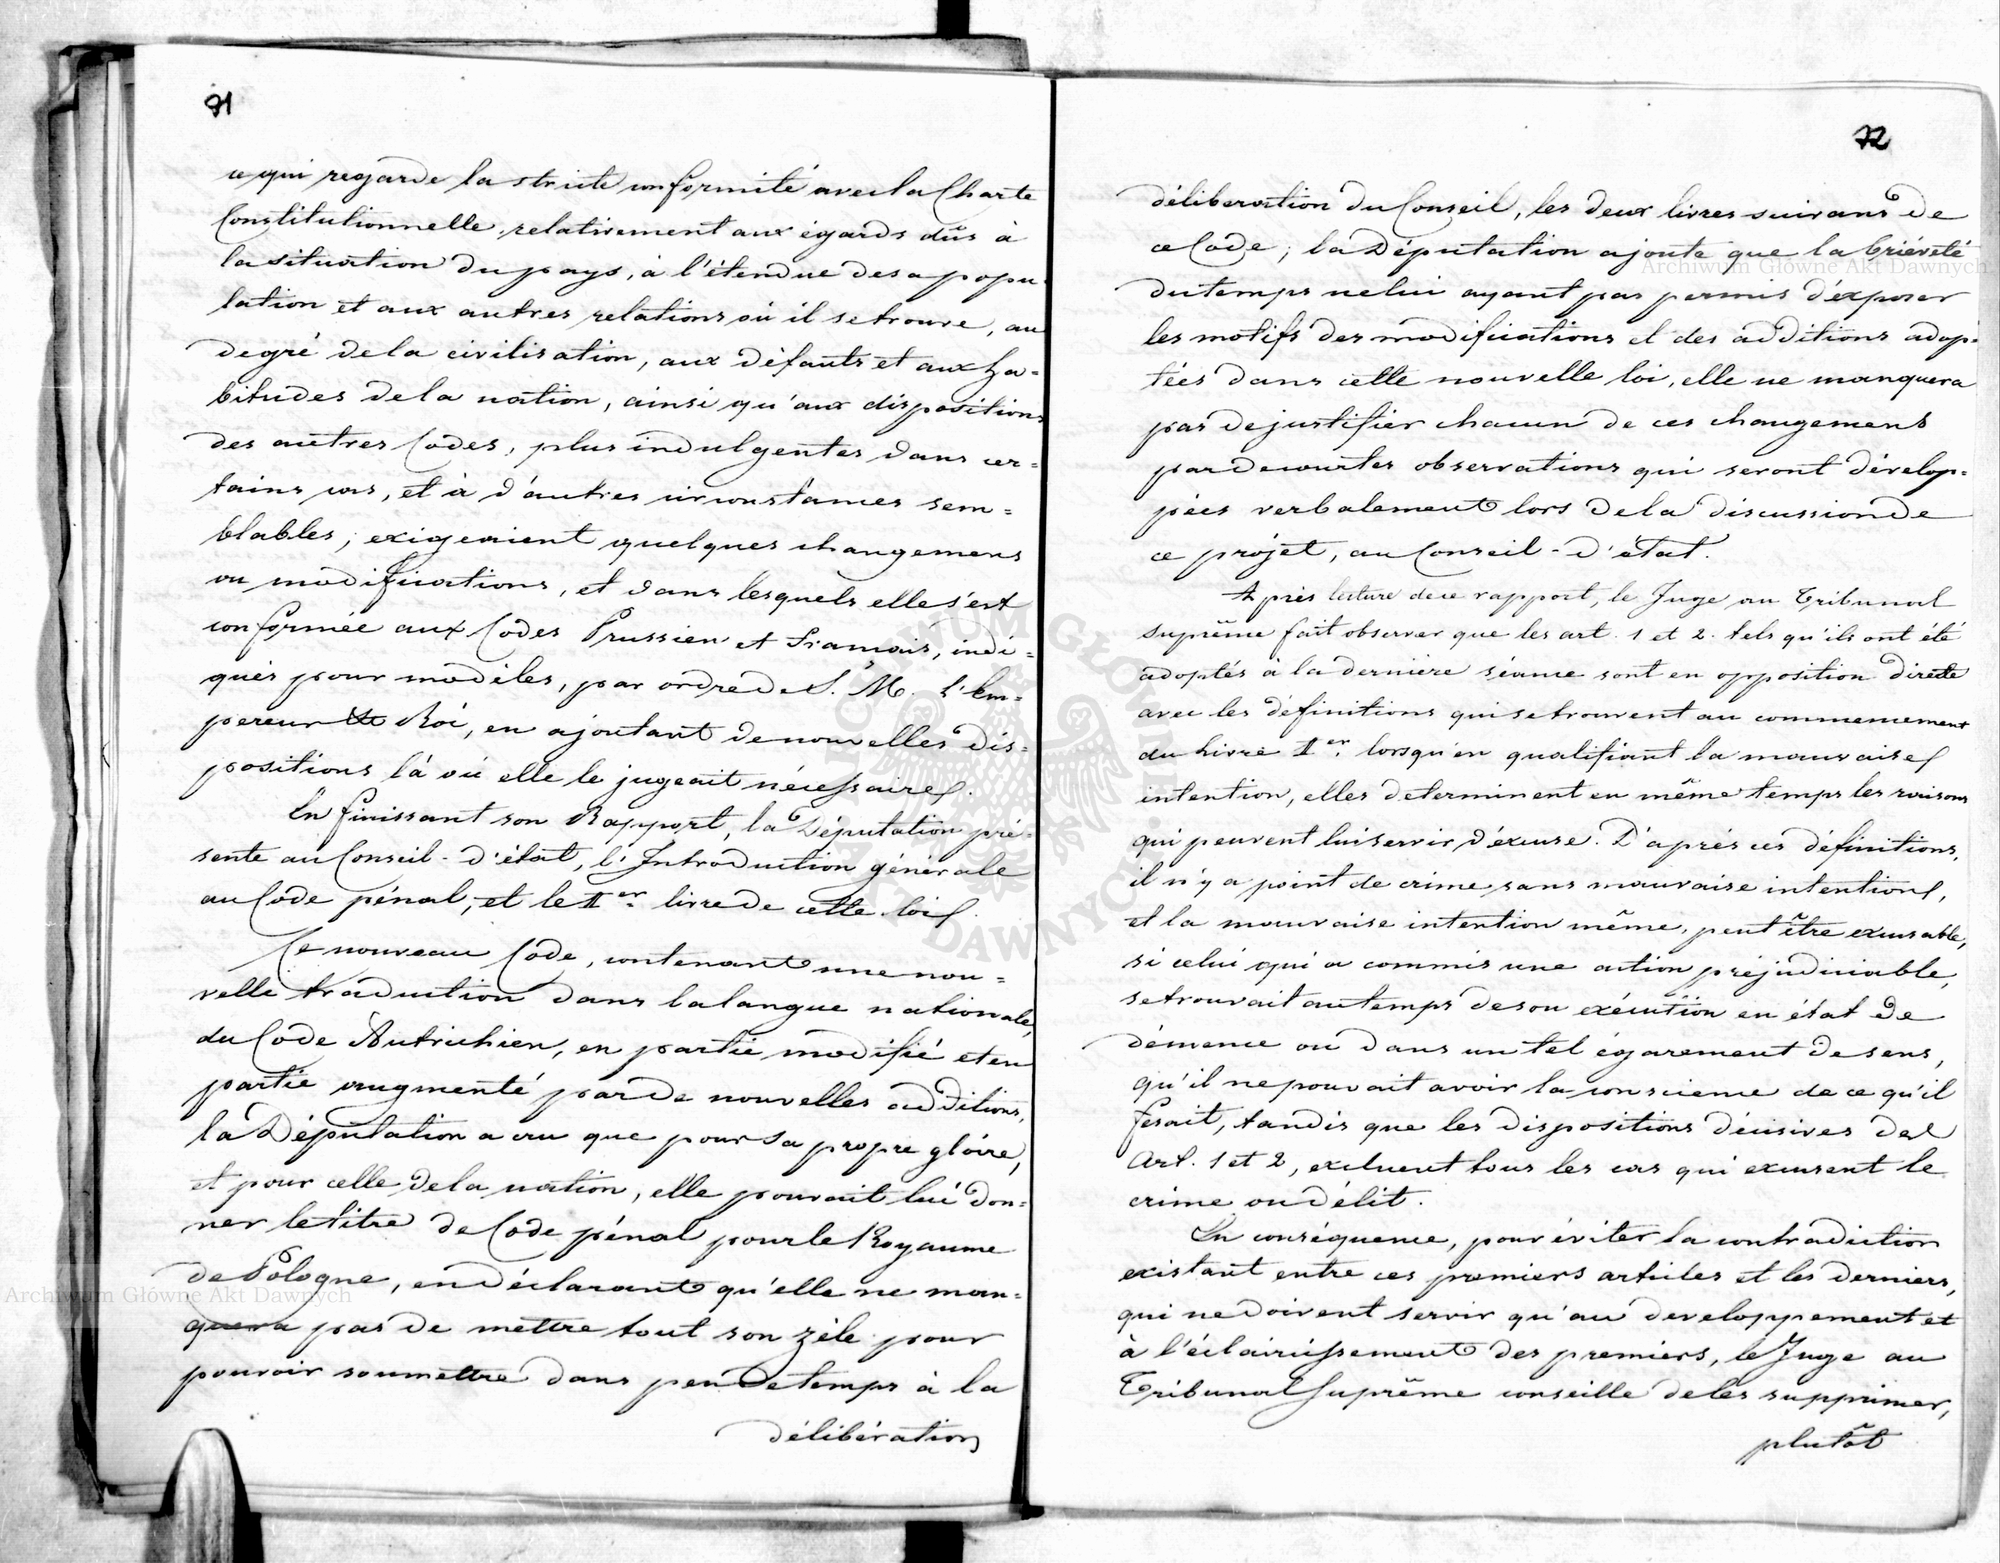 91
ce qui regarde la stricte conformité avec la Charte
Constitutionnelle, relativement aux égards dûs à
la situation du pays, à l'étendue de sa popu-
lation et aux autres relations où il se trouve, au
degré de la civilisation, aux défauts et aux ha=
bitudes de la nation, ainsi qu'aux dispositions
des autres Codes, plus indulgentes dans cer=
tains cas, et à d'autres circonstances sem=
blables, exigeaient quelques changemens
ou modifications, et dans lesquels elle s'est
conformée aux Codes Prussien et Français, indi=
qués pour modèles, par ordre de S. M. l'Em=
pereur et Roi, en ajoutant de nouvelles dis=
positions là où elle le jugeait nécessaire.
En finissant son Rapport, la Députation pré-
sente au Conseil-d'état, l'Introduction générale
au Code pénal, et le Ier livre de cette loi.
Ce nouveau Code, contenant une nou=
velle traduction dans la langue nationale,
du Code Autrichien, en partie modifié et en
partie augmenté par de nouvelles additions,
la Députation a cru que pour sa propre gloire,
et pour celle de la nation, elle pouvait lui don=
ner le titre de Code pénal pour le Royaume
de Pologne, en déclarant qu'elle ne man=
quera pas de mettre tout son zèle pour
pouvoir soumettre dans peu de temps à la
délibération
72
délibération du Conseil, les deux livres suivans de
ce Code; la Députation ajoute que la brièveté
du temps ne lui ayant pas permis d'exposer
les motifs des modifications et des additions adop-
tées dans cette nouvelle loi, elle ne manquera
pas de justifier chacun de ces changemens
par de courtes observations qui seront dévelop=
pées verbalement lors de la discussion de
ce projet, au Conseil-d'état.
Après lecture de ce rapport, le Juge au Tribunal
Suprême fait observer que les art. 1 et 2. tels qu'ils ont été
adoptés à la dernière séance sont en opposition directe
avec les définitions qui se trouvent au commencement
du Livre Ier. lorsqu'en qualifiant la mauvaise
intention, elles determinent en même temps les raisons
qui peuvent lui servir d'excuse. D'après ces définitions,
il n'y a point de crime sans mauvaise intention,
et la mauvaise intention même, peut être excusable,
si celui qui a commis une action préjudiciable,
se trouvait au temps de son exécution en état de
démence ou dans un tel égarement de sens,
qu'il ne pouvait avoir la conscience de ce qu'il
fesait, tandis que les dispositions décisives des
Art. 1 et 2, excluent tous les cas qui excusent le
crime ou délit.
En conséquence, pour éviter la contradiction
existant entre ces premiers articles et les derniers,
qui ne doivent servir qu'au developpement et
à l'éclaircissement des premiers, le Juge au
Tribunal Suprême conseille de les supprimer,
plutôt
Archiwum Główne Akt Dawnych
Archiwum Główne Akt Dawnych
ARCHIWUM GŁÓWNE AKT DAWNYCH